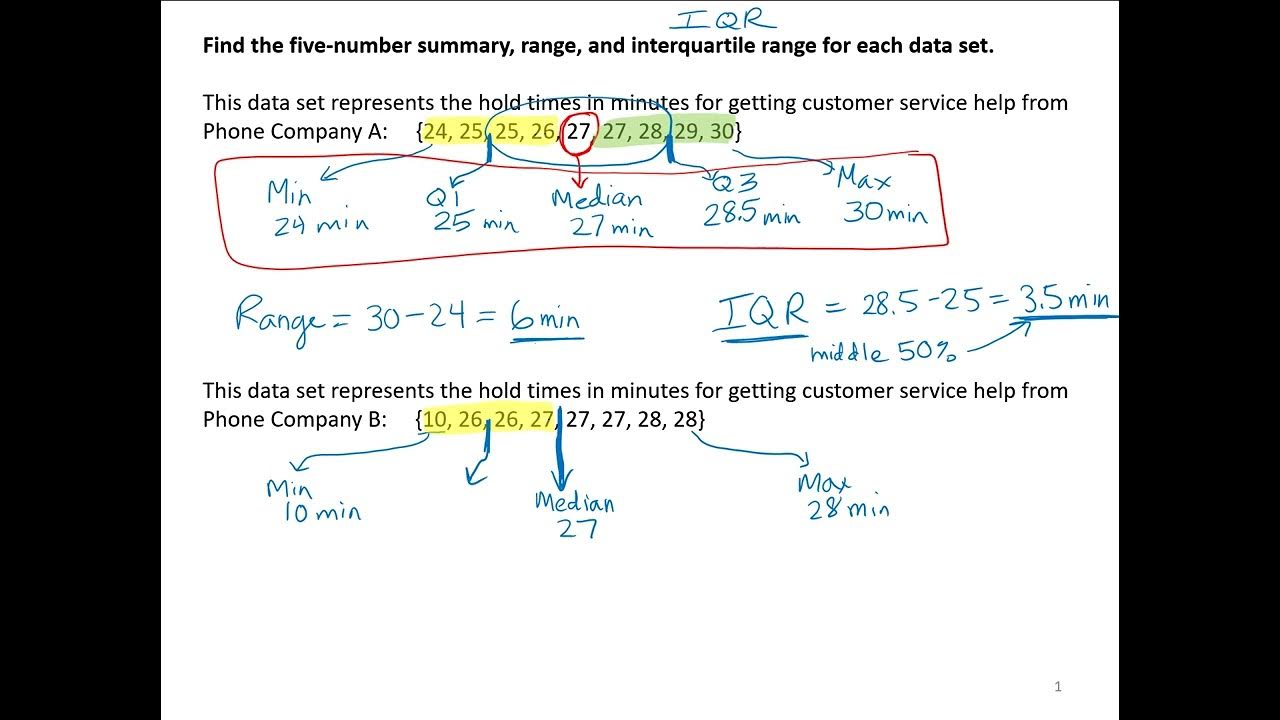 IQR
Find the five-number summary, range, and interquartile range for each data set.
This data set represents the hold times in minutes for getting customer service help from
Phone Company A: {24, 25, 25, 26, 27, 27, 28, 29, 30}
Min Q1 Median Q3 Max
24 min 25 min 27 min 28.5 min 30 min
Range = 30 - 24 = 6 min IQR = 28.5 - 25 = 3.5 min
middle 50%
This data set represents the hold times in minutes for getting customer service help from
Phone Company B: {10, 26, 26, 27, 27, 27, 28, 28}
Min Median Max
10 min 27 28 min
1